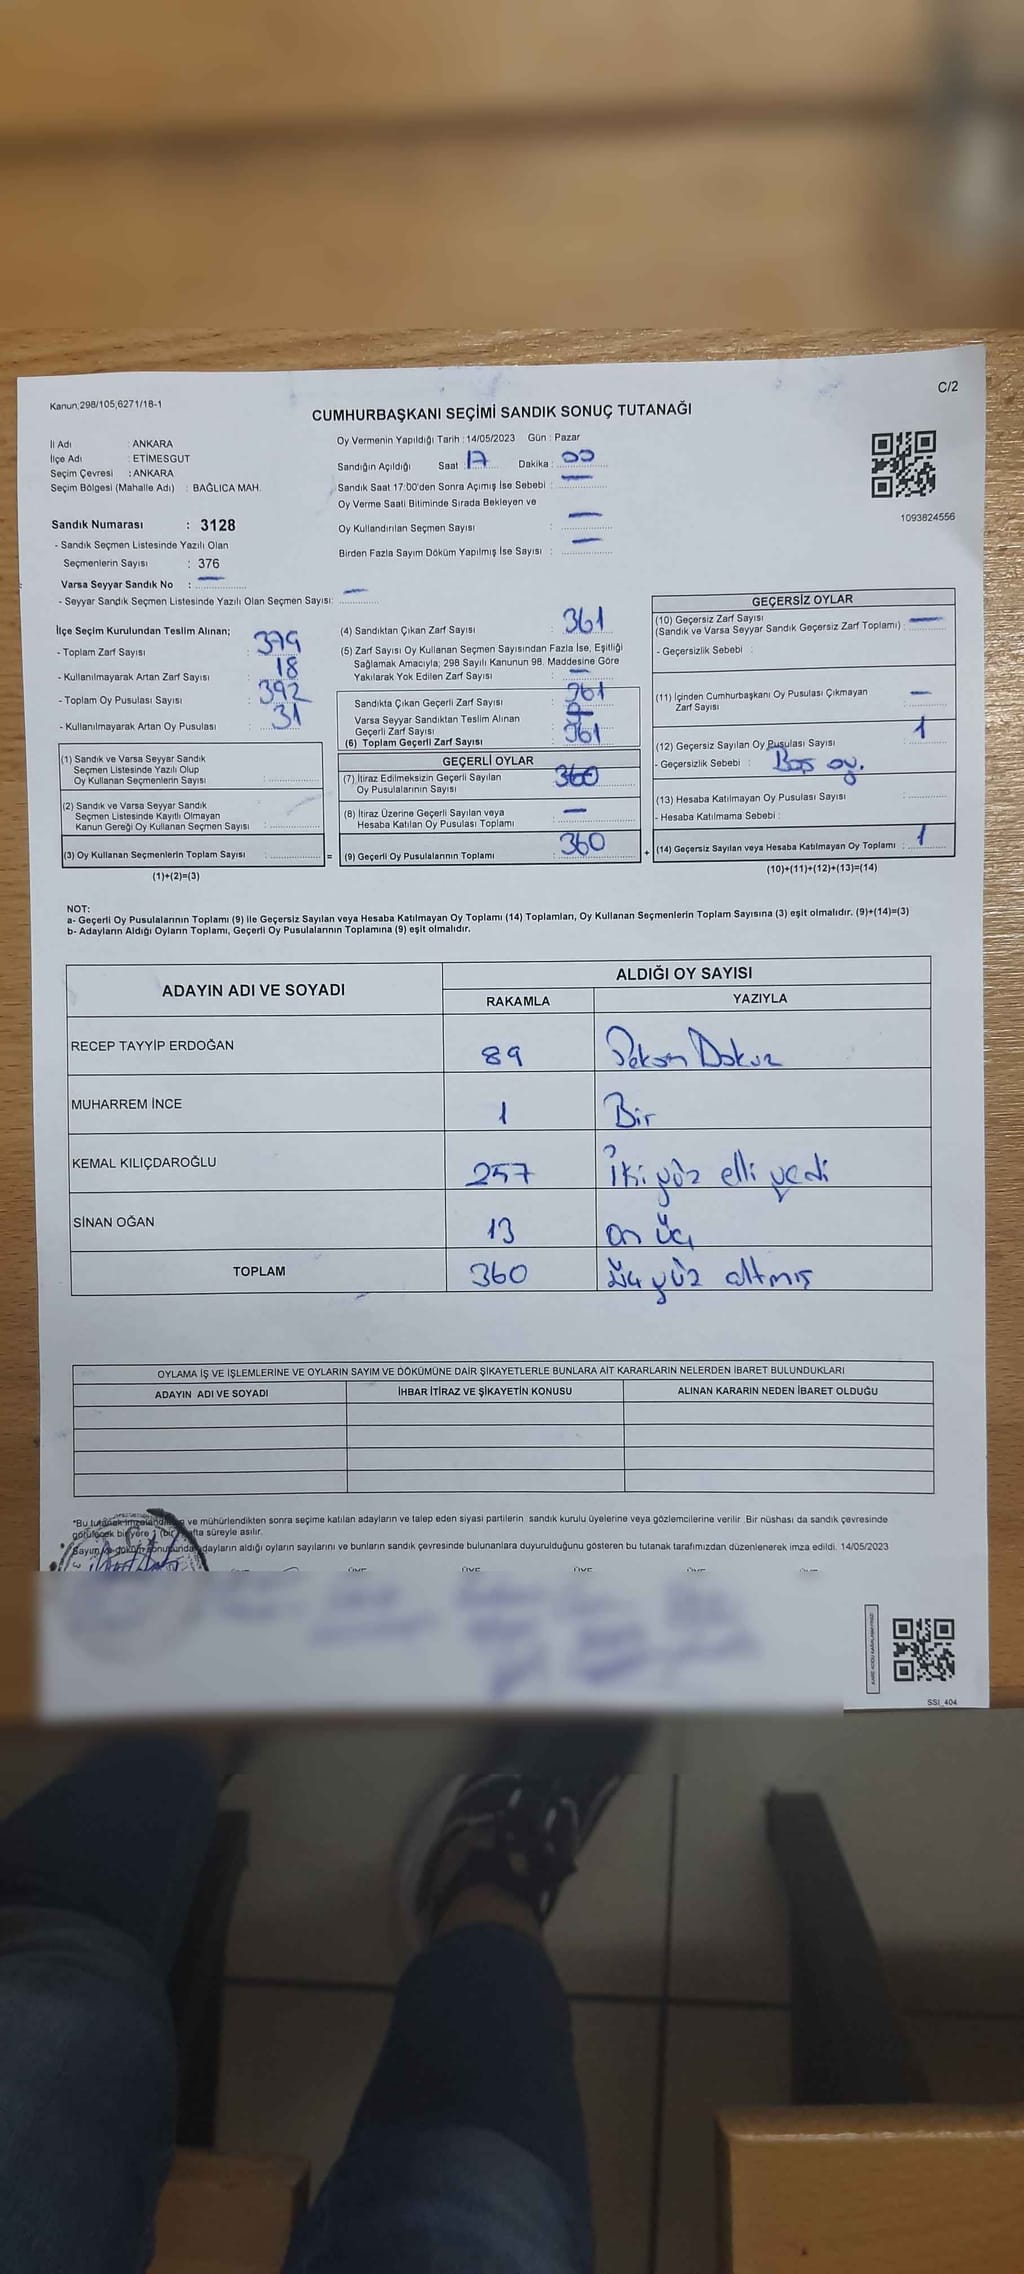 Kanun;298/105;6271/18-1
C/2
CUMHURBAŞKANI SEÇİMİ SANDIK SONUÇ TUTANAĞI
İl Adı : ANKARA
İlçe Adı : ETİMESGUT
Seçim Çevresi : ANKARA
Seçim Bölgesi (Mahalle Adı) : BAĞLICA MAH.
Oy Vermenin Yapıldığı Tarih : 14/05/2023 Gün : Pazar
Sandığın Açıldığı Saat : 17 Dakika : 00
Sandık Saat 17:00'den Sonra Açımış İse Sebebi : —
Oy Verme Saati Bitiminde Sırada Bekleyen ve
Oy Kullandırılan Seçmen Sayısı : —
Birden Fazla Sayım Döküm Yapılmış İse Sayısı : —
1093824556
Sandık Numarası : 3128
- Sandık Seçmen Listesinde Yazılı Olan
Seçmenlerin Sayısı : 376
Varsa Seyyar Sandık No : —
- Seyyar Sandık Seçmen Listesinde Yazılı Olan Seçmen Sayısı: —
İlçe Seçim Kurulundan Teslim Alınan;
- Toplam Zarf Sayısı : 379
- Kullanılmayarak Artan Zarf Sayısı : 18
- Toplam Oy Pusulası Sayısı : 392
- Kullanılmayarak Artan Oy Pusulası : 31
(1) Sandık ve Varsa Seyyar Sandık
Seçmen Listesinde Yazılı Olup
Oy Kullanan Seçmenlerin Sayısı :
(2) Sandık ve Varsa Seyyar Sandık
Seçmen Listesinde Kayıtlı Olmayan
Kanun Gereği Oy Kullanan Seçmen Sayısı :
(3) Oy Kullanan Seçmenlerin Toplam Sayısı : =
(1)+(2)=(3)
(4) Sandıktan Çıkan Zarf Sayısı : 361
(5) Zarf Sayısı Oy Kullanan Seçmen Sayısından Fazla İse, Eşitliği
Sağlamak Amacıyla; 298 Sayılı Kanunun 98. Maddesine Göre
Yakılarak Yok Edilen Zarf Sayısı : —
Sandıkta Çıkan Geçerli Zarf Sayısı : 361
Varsa Seyyar Sandıktan Teslim Alınan
Geçerli Zarf Sayısı :
(6) Toplam Geçerli Zarf Sayısı : 361
GEÇERLİ OYLAR
(7) İtiraz Edilmeksizin Geçerli Sayılan
Oy Pusulalarının Sayısı : 360
(8) İtiraz Üzerine Geçerli Sayılan veya
Hesaba Katılan Oy Pusulası Toplamı : —
(9) Geçerli Oy Pusulalarının Toplamı : 360 +
GEÇERSİZ OYLAR
(10) Geçersiz Zarf Sayısı
(Sandık ve Varsa Seyyar Sandık Geçersiz Zarf Toplamı) : —
- Geçersizlik Sebebi :
(11) İçinden Cumhurbaşkanı Oy Pusulası Çıkmayan
Zarf Sayısı : —
(12) Geçersiz Sayılan Oy Pusulası Sayısı : 1
- Geçersizlik Sebebi : Boş oy.
(13) Hesaba Katılmayan Oy Pusulası Sayısı :
- Hesaba Katılmama Sebebi :
(14) Geçersiz Sayılan veya Hesaba Katılmayan Oy Toplamı : 1
(10)+(11)+(12)+(13)=(14)
NOT:
a- Geçerli Oy Pusulalarının Toplamı (9) ile Geçersiz Sayılan veya Hesaba Katılmayan Oy Toplamı (14) Toplamları, Oy Kullanan Seçmenlerin Toplam Sayısına (3) eşit olmalıdır. (9)+(14)=(3)
b- Adayların Aldığı Oyların Toplamı, Geçerli Oy Pusulalarının Toplamına (9) eşit olmalıdır.
ADAYIN ADI VE SOYADI
ALDIĞI OY SAYISI
RAKAMLA YAZIYLA
RECEP TAYYİP ERDOĞAN 89 Seksen Dokuz
MUHARREM İNCE 1 Bir
KEMAL KILIÇDAROĞLU 257 İki yüz elli yedi
SİNAN OĞAN 13 on üç
TOPLAM 360 üç yüz altmış
OYLAMA İŞ VE İŞLEMLERİNE VE OYLARIN SAYIM VE DÖKÜMÜNE DAİR ŞİKAYETLERLE BUNLARA AİT KARARLARIN NELERDEN İBARET BULUNDUKLARI
ADAYIN ADI VE SOYADI İHBAR İTİRAZ VE ŞİKAYETİN KONUSU ALINAN KARARIN NEDEN İBARET OLDUĞU
*Bu tutanak ve mühürlendikten sonra seçime katılan adayların ve talep eden siyasi partilerin sandık kurulu üyelerine veya gözlemcilerine verilir. Bir nüshası da sandık çevresinde
görülecek bir yere 1 (bir) hafta süreyle asılır.
adayların aldığı oyların sayılarını ve bunların sandık çevresinde bulunanlara duyurulduğunu gösteren bu tutanak tarafımızdan düzenlenerek imza edildi. 14/05/2023
SSI_404